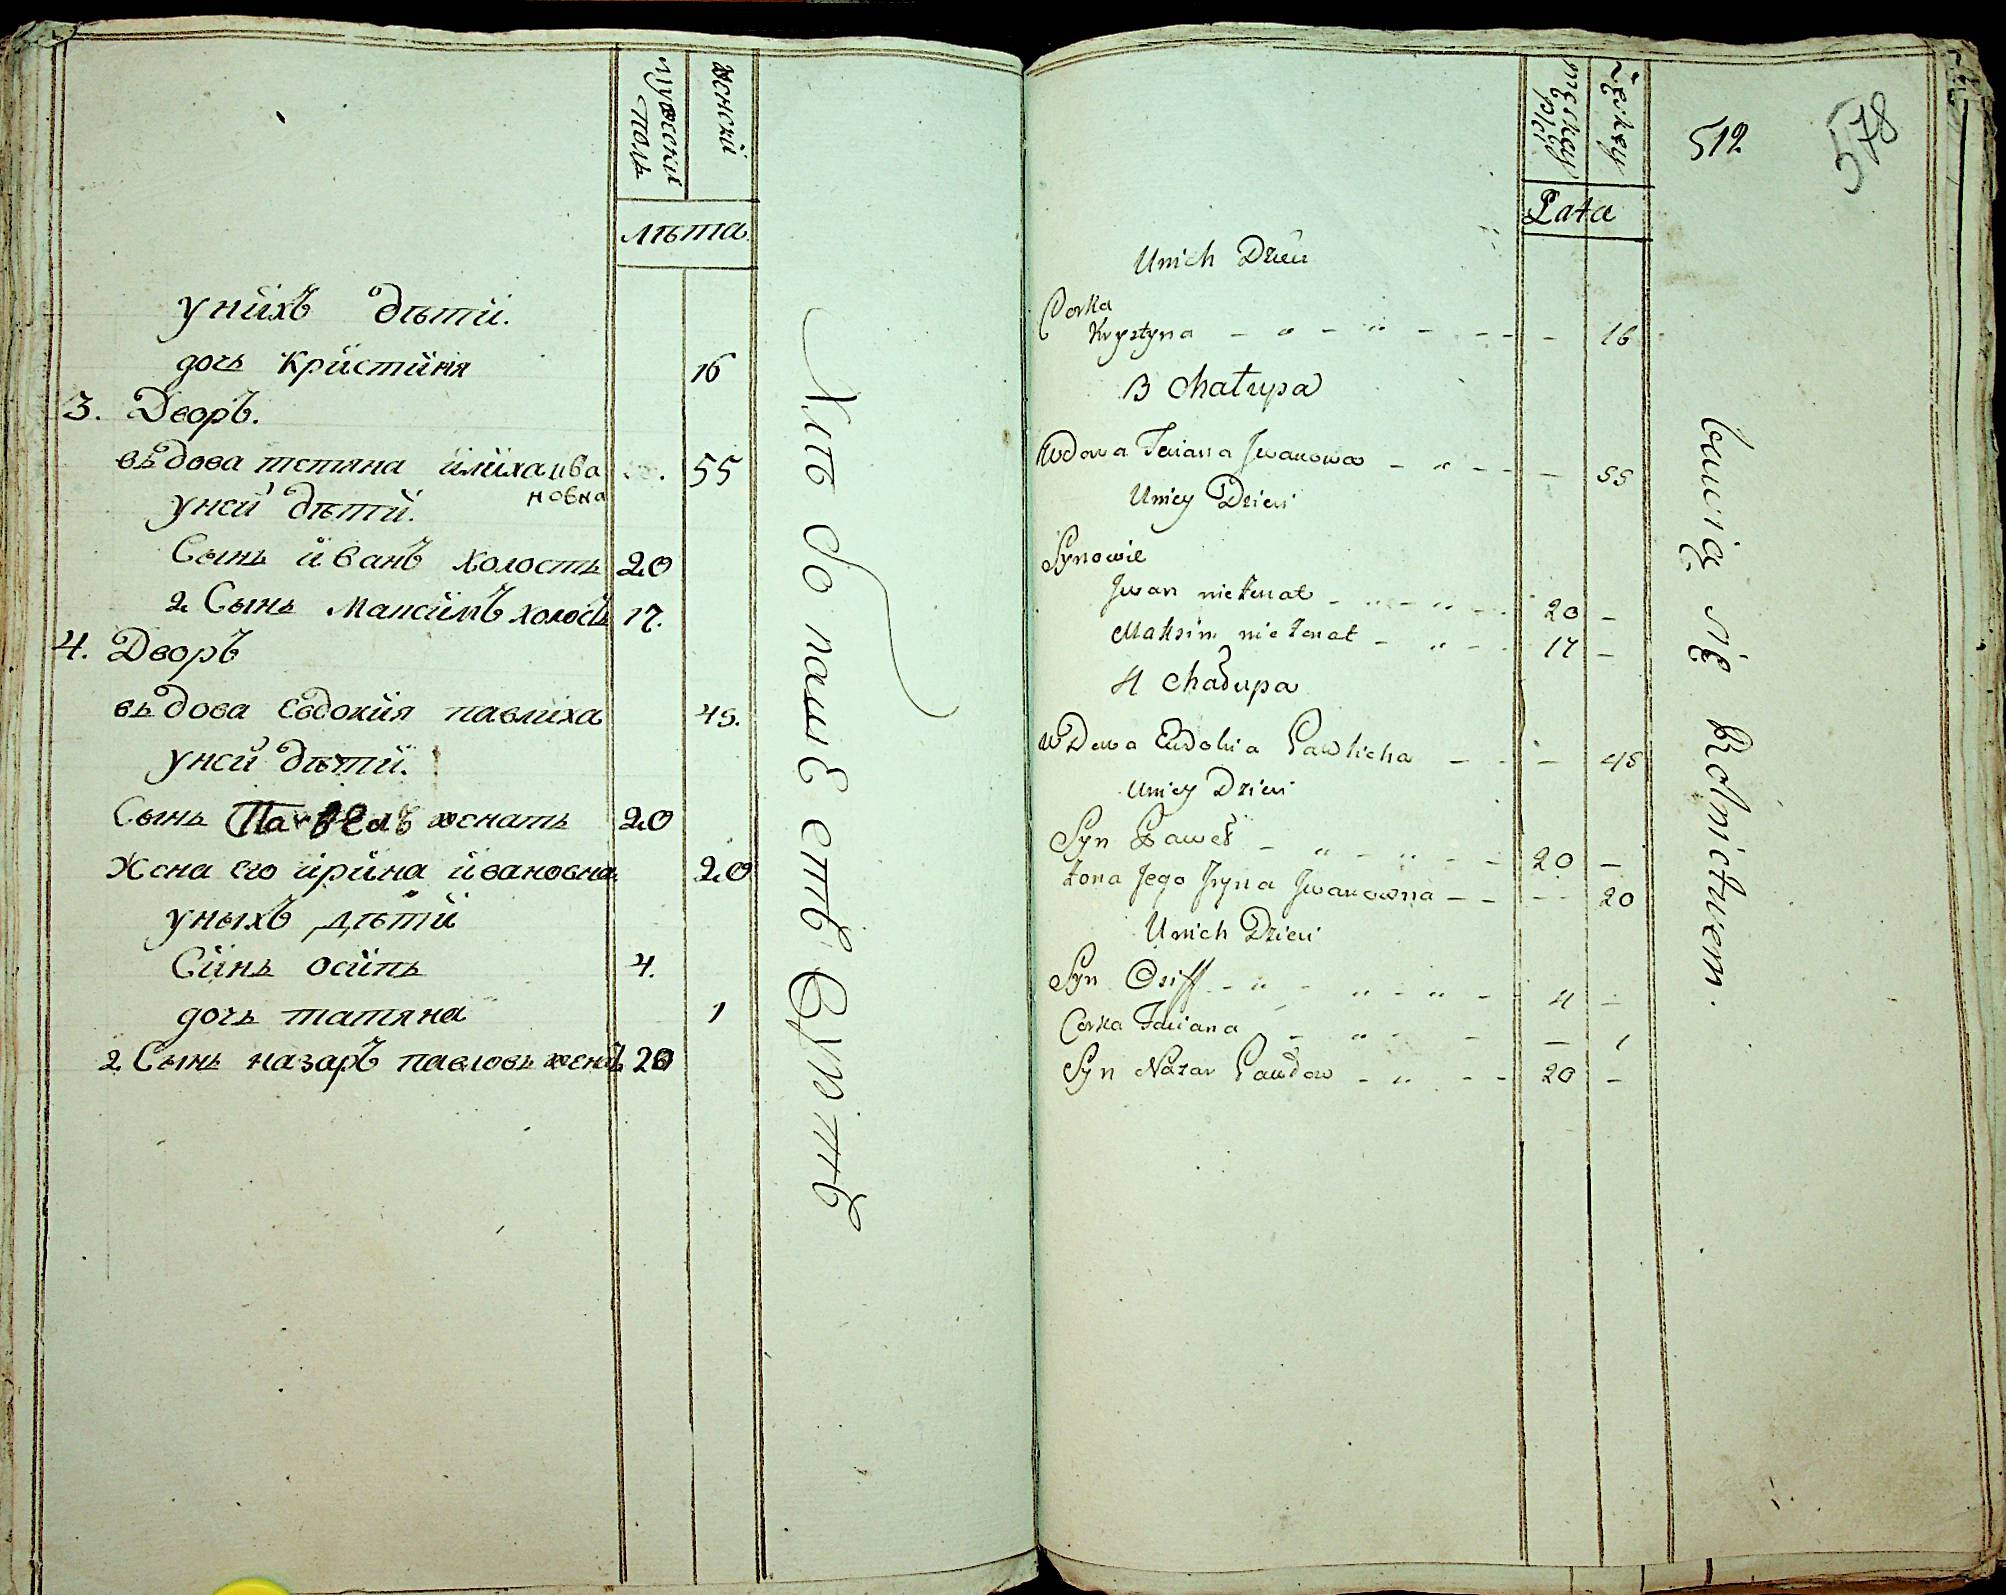 мужеский
полъ
женскій
лѣта
у нихъ дѣти.
дочь Кристиня 16
3. Дворъ.
вьдова тетяна илиха ива
новна 55
у ней дѣти.
Сынь иванъ холость 20
2 Сынь максимъ холость 17.
4. Дворъ
вьдова Евдокия павлиха 45.
у ней дѣти.
Сынь Павелъ женать 20
Жена его ирина ивановна 20
у ныхъ дѣти
Синь осипь 4.
дочь татяна 1
2 Сынь назаръ павловь женъ 20
Хлѣбо пашествъ
512
578
męzkey
płci
Żęskey
Lata
U nich Dzieci
Corka
Krystyna - " - " - - - 16
3 Chałupa
Wdowa Taciana Jwanowa - " - - - 55
U niey Dzieci
Synowie
Jwan nieżenat - " - " - - 20 -
Maksim nieżenat - " - - 17 -
4 Chałupa
Wdowa Eudokia Pawlicha - - - 45
U niey Dzieci
Syn Paweł - " - " - - 20 -
żona Jego Jryna Jwanowna - - - - 20
U nich Dzieci
Syn Osiff - " - " - " - 4 -
Corka Taciana - " - - - 1
Syn Nazar Pawłow - " - - 20 -
bawią się Rolnictwem.